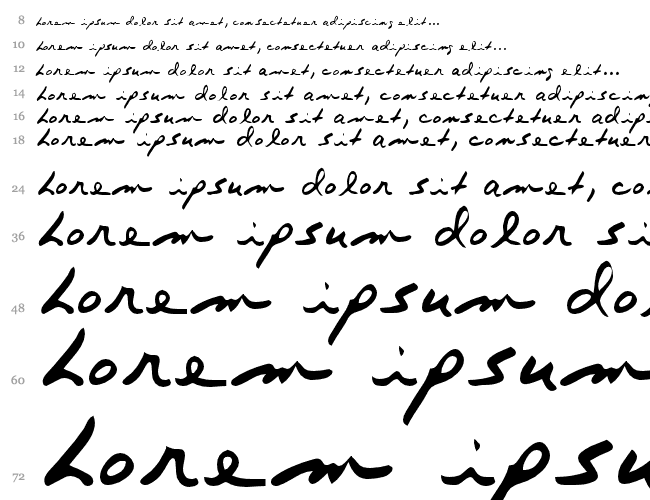 8 Lorem ipsum dolor sit amet, consectetuer adipiscing elit...
10 Lorem ipsum dolor sit amet, consectetuer adipiscing elit...
12 Lorem ipsum dolor sit amet, consectetuer adipiscing elit...
14 Lorem ipsum dolor sit amet, consectetuer adipiscing
16 Lorem ipsum dolor sit amet, consectetuer adipis
18 Lorem ipsum dolor sit amet, consectetuer
24 Lorem ipsum dolor sit amet, co
36 Lorem ipsum dolor si
48 Lorem ipsum dol
60 Lorem ipsum
72 Lorem ipsu